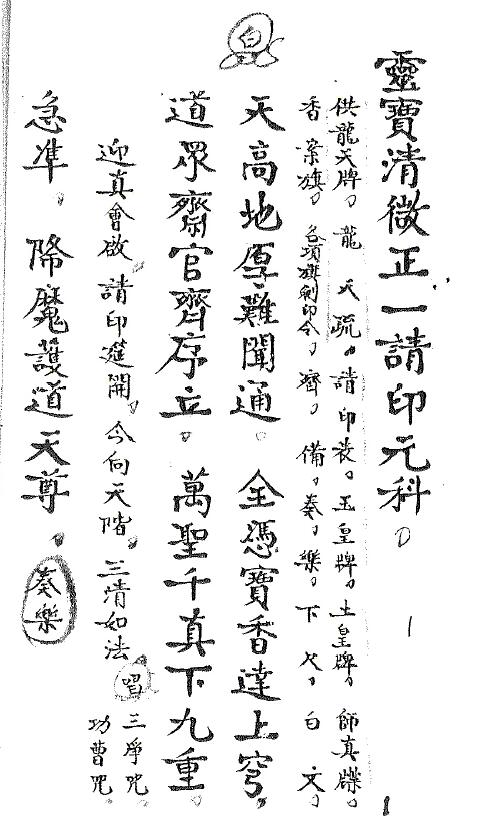 靈寶清微正一請印元科。
供龍天牌。龍天疏。請印表。玉皇牌。土皇牌。師真牒。
香案旗。各項旗劍印令。齊。備。奏。樂。下文。白文。
天高地厚難聞通。全憑寶香達上穹。
道眾齋官齊序立。萬聖千真下九重。
迎真會啟請印筵開。今向天階。三清如法
唱
三淨咒
功曹咒。
急準。降魔護道天尊。奏樂
1